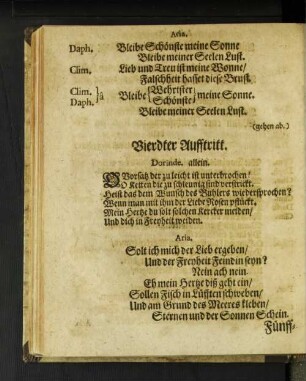 Aria.
Daph. Bleibe Schönste meine Sonne
Bleibe meiner Seelen Lust.
Clim. Lieb und Treu ist meine Wonne/
Falschheit hasset diese Brust.
Clim. Daph. } Bleibe { Wehrister Schönste } meine Sonne.
Bleibe meiner Seelen Lust.
(gehen ab.)
Vierdter Aufftritt.
Dorinde. allein.
O Vorsatz der zu leicht ist unterbrochen/
O Ketten die zu schleunig sind verstrickt.
Heist das dem Wunsch des Buhlers wiedersprochen?
Wenn man mit ihm der Liebe Rosen pflückt.
Mein Hertze du solt solchen Kercker meiden/
Und dich in Freyheit weiden.
Aria.
Solt ich mich der Lieb ergeben/
Und der Freyheit Feindin seyn?
Nein ach nein.
Eh mein Hertze diß geht ein/
Sollen Fisch in Lüfften schweben/
Und am Grund des Meeres kleben/
Sternen und der Sonnen Schein.
Fünff-